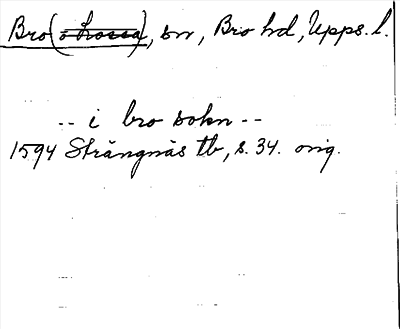 Bro (o Lossa), sn, Bro hd, Upps. l.
-- i bro sokn --
1594 Strängnäs tb, s. 34. orig.